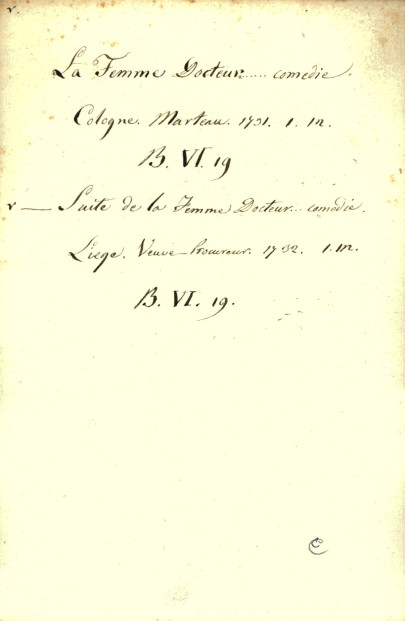 v.
La Femme Docteur..... comedie.
Cologne. Marteau. 1731. 1. in.
B. VI. 19
v — Suite de la Femme Docteur... comédie.
Liege. Veuve Procureur. 1732. 1. in.
B. VI. 19.
C